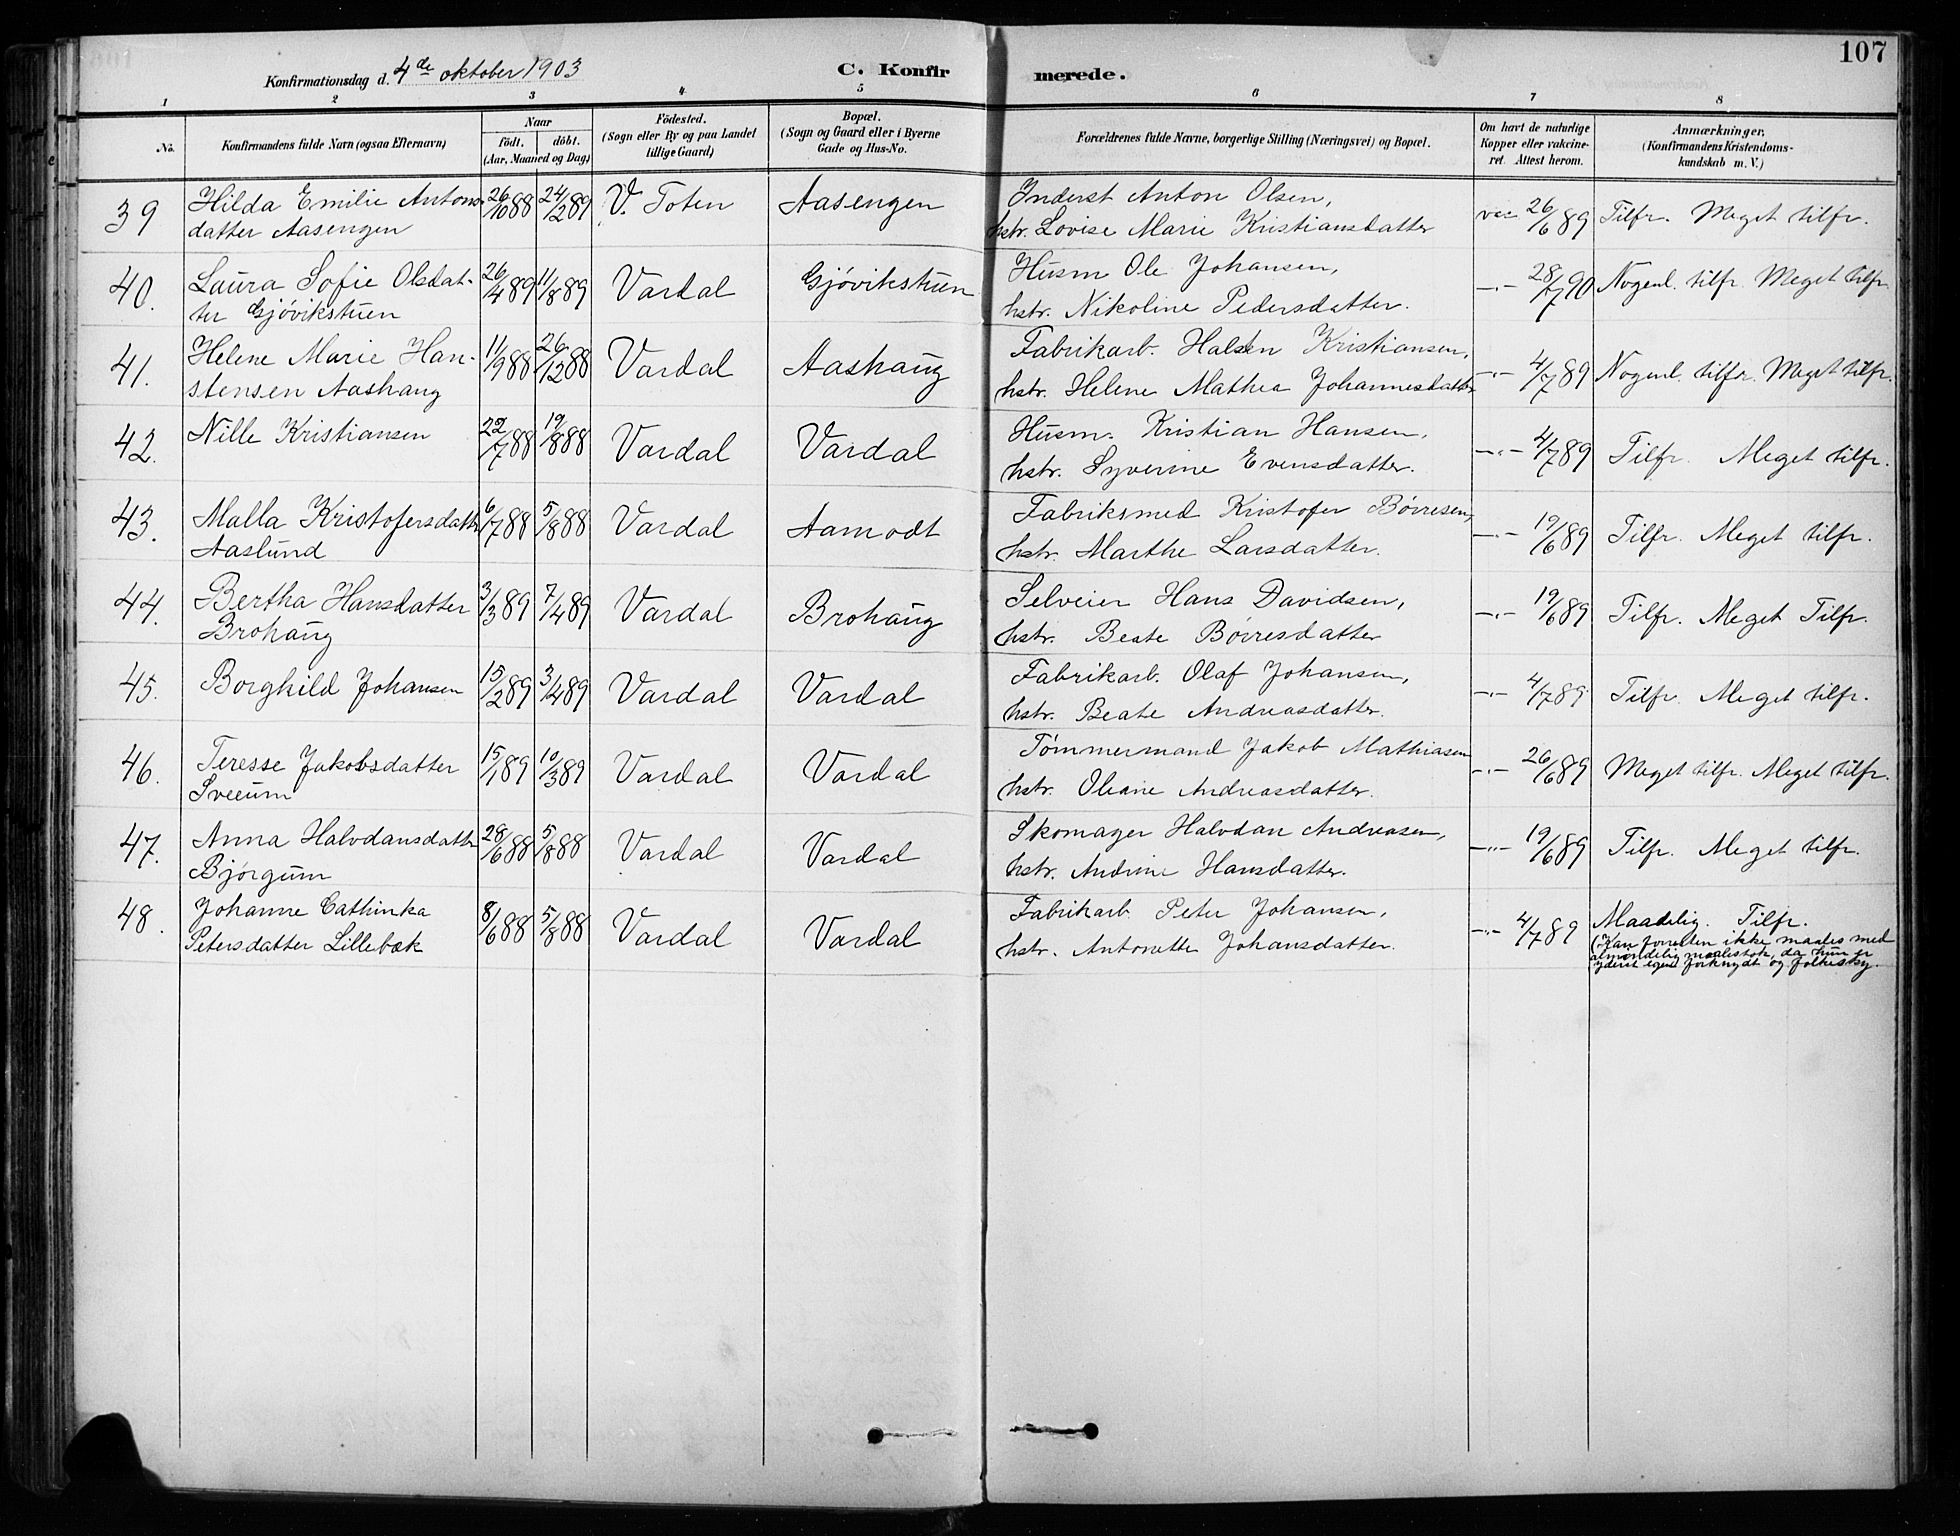 107
Konfirmationsdag d. 4de oktober 1903
C. Konfirmerede.
1 2 3 4 5 6 7 8
No.
Konfirmandens fulde Navn (ogsaa Efternavn)
Naar
födt. döbt.
(Aar, Maaned og Dag)
Födested.
(Sogn eller By og paa Landet
tillige Gaard)
Bopæl.
(Sogn og Gaard eller i Byerne
Gade og Hus-No.
Forældrenes fulde Navne, borgerlige Stilling (Næringsvei) og Bopæl.
Om havt de naturlige
Kopper eller vakcine-
ret. Attest herom.
Anmærkninger,
(Konfirmandens Kristendoms-
kundskab m. V.)
39 Hilda Emilie Antons- 26/10 88 24/2 89 V. Toten Aasengen Inderst Anton Olsen, vac 26/6 89 Tilfr. Meget tilfr.
datter Aasengen hstr. Lovise Marie Kristiansdatter
40. Laura Sofie Olsdat- 26/4 89 11/8 89 Vardal Gjövikstuen Husm Ole Johansen, —"— 28/7 90 Nogenl. tilfr. Meget tilfr.
ter Gjövikstuen hstr. Nikoline Pedersdatter.
41. Helene Marie Han- 11/9 88 26/12 88 Vardal Aashaug Fabrikarb. Halsten Kristiansen, —"— 4/7 89 Nogenl. tilfr. Meget tilfr.
stensen Aashaug hstr. Helene Mathea Johannesdatter
42. Nille Kristiansen 22/7 88 19/8 88 Vardal Vardal Husm. Kristian Hansen, —"— 4/7 89 Tilfr. Meget tilfr.
hstr. Syverine Evensdatter.
43. Malla Kristofersdatter 6/7 88 5/8 88 Vardal Aamodt Fabriksmed Kristofer Börresen, —"— 19/6 89 Tilfr. Meget tilfr.
Aaslund hstr. Marthe Larsdatter.
44. Bertha Hansdatter 3/3 89 7/4 89 Vardal Brohaug Selveier Hans Davidsen, —"— 19/6 89 Tilfr. Meget Tilfr.
Brohaug hstr. Beate Börresdatter
45. Borghild Johansen 15/2 89 3/4 89 Vardal Vardal Fabrikarb. Olaf Johansen, —"— 4/7 89 Tilfr. Meget tilfr.
hstr. Beate Andreasdatter.
46. Teresse Jakobsdatter 15/1 89 10/3 89 Vardal Vardal Tömmermand Jakob Mathiasen —"— 26/6 89 Meget tilfr. Meget tilfr.
Sveeum hstr. Oleane Andreasdatter.
47. Anna Halvdansdatter 28/6 88 5/8 88 Vardal Vardal Skomager Halvdan Andreasen, —"— 19/6 89 Tilfr. Meget tilfr.
Bjørgum hstr. Andrine Hansdatter.
48. Johanne Cathinka 8/6 88 5/8 88 Vardal Vardal Fabrikarb. Peter Johansen, —"— 4/7 89 Maadelig. Tilfr.
Petersdatter Lillebæk hstr. Antonette Johansdatter. (Kan forresten ikke maales med
almindelig maalestok, da hun er
yderst egen forknydt og folkesky.